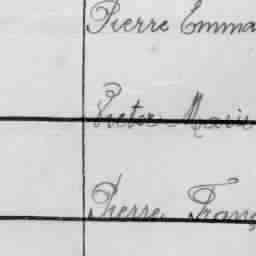 Pierre Emma
Victor Marie
Pierre Franç